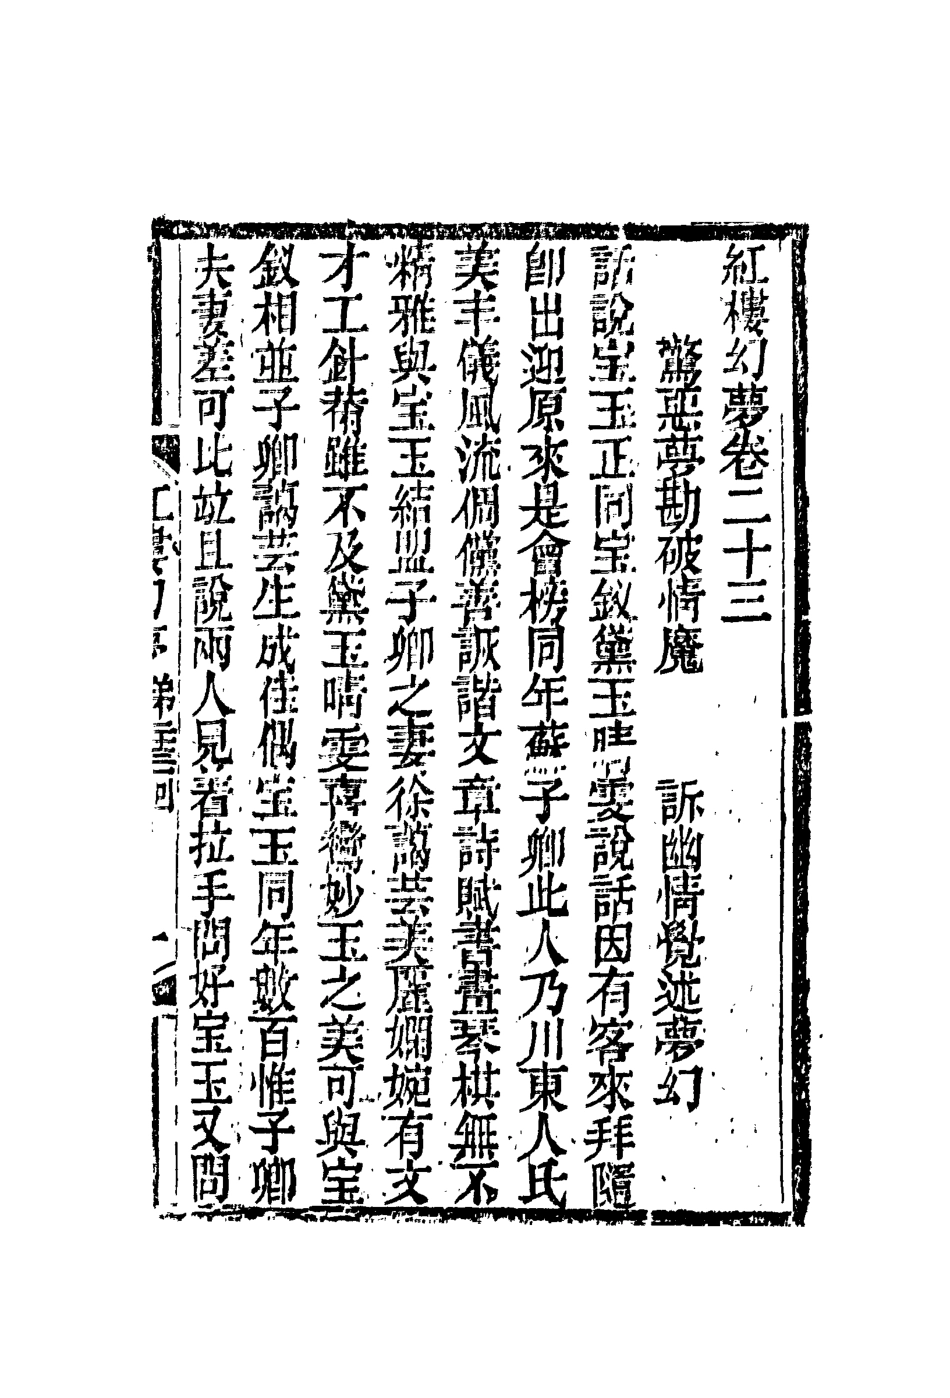 紅樓幻夢卷二十三
驚惡夢勘破情魔　訴幽情覺述夢幻
話說宝玉正同宝釵黛玉晴雯說話因有客來拜隨
卽出迎原來是會榜同年蘇子卿此人乃川東人氏
美丰儀風流倜儻善詼諧文章詩賦書畵琴棋無不
精雅與宝玉結盟子卿之妻徐藹芸美麗嫻婉有文
才工針黹雖不及黛玉晴雯喜鸞妙玉之美可與宝
釵相並子卿藹芸生成佳偶宝玉同年數百惟子卿
夫妻差可比竝且說兩人見着拉手問好宝玉又問